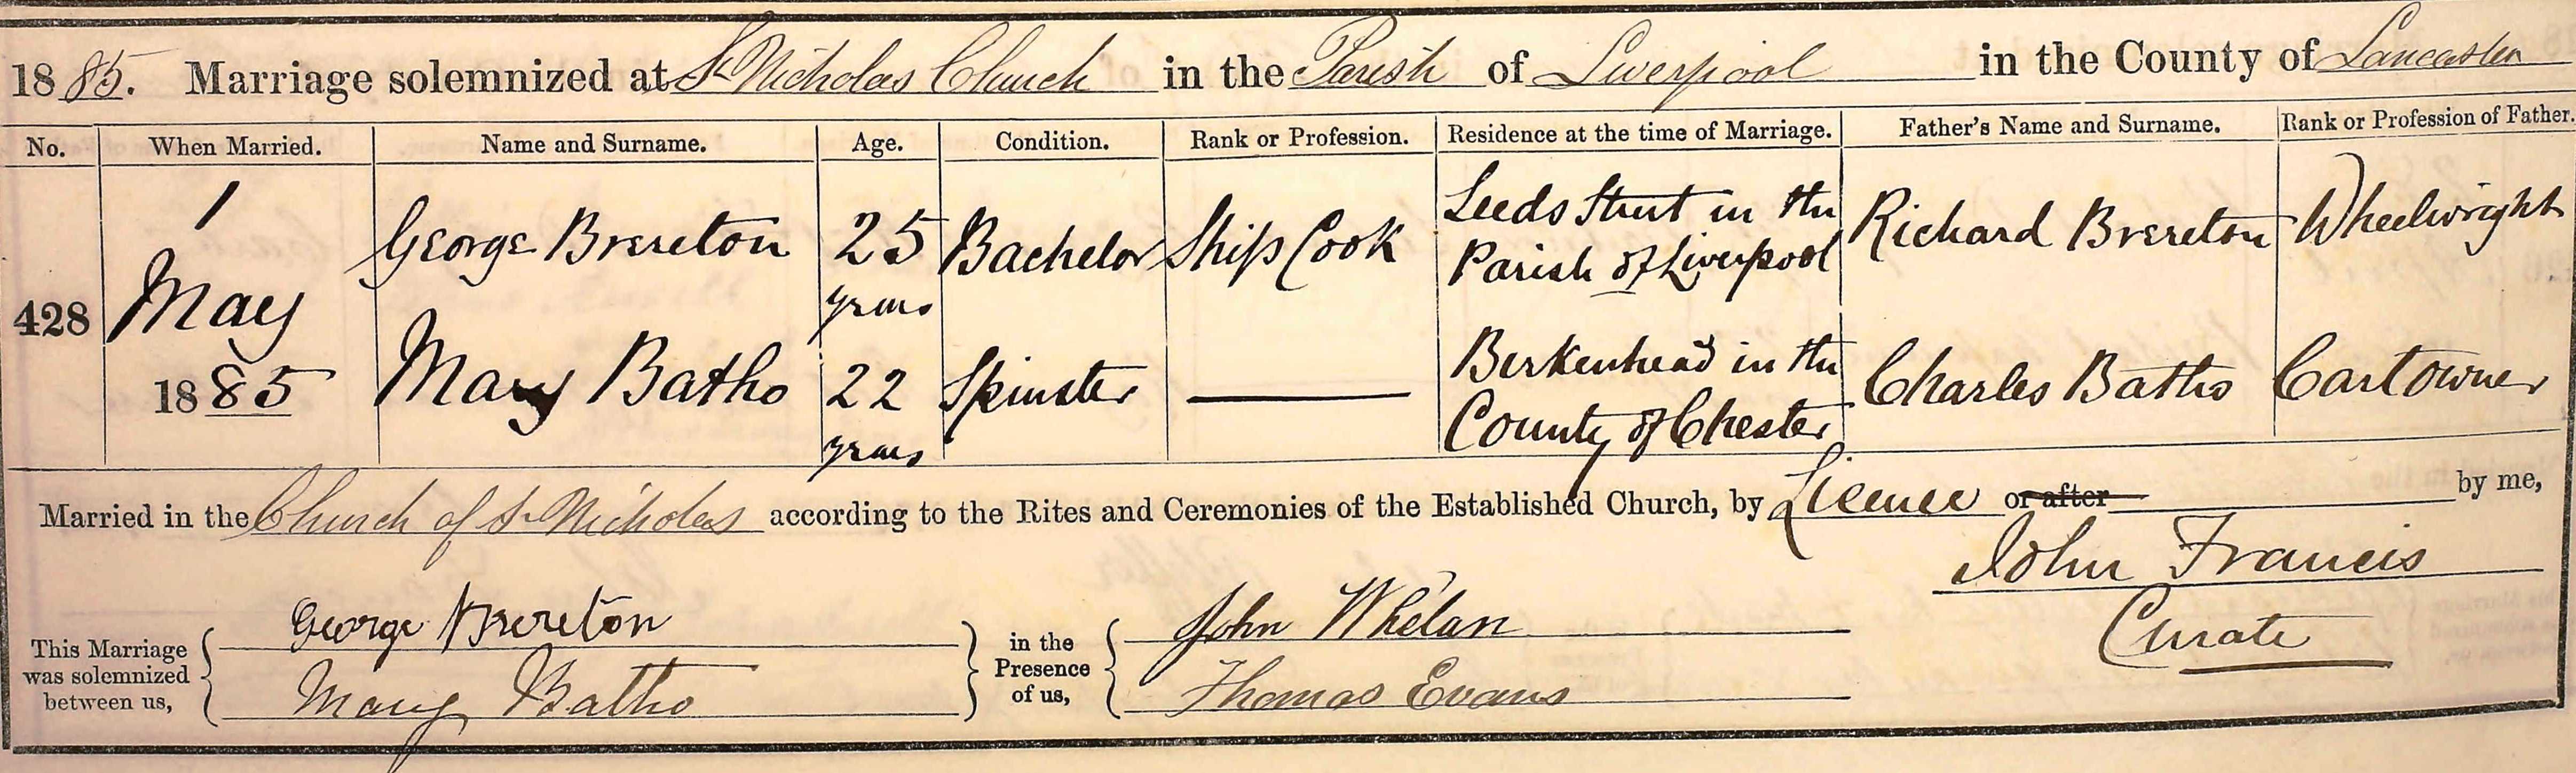 1885. Marriage solemnized at St Nicholas Church in the Parish of Liverpool in the County of Lancaster
No. When Married. Name and Surname. Age. Condition. Rank or Profession. Residence at the time of Marriage. Father's Name and Surname. Rank or Profession of Father.
428
1
May
1885
George Brereton 25 years Bachelor Ship Cook Leeds Street in the Parish of Liverpool Richard Brereton Wheelwright
Mary Batho 22 years Spinster — Berkenhead in the County of Chester Charles Batho Cartowner
Married in the Church of St Nicholas according to the Rites and Ceremonies of the Established Church, by Licence or after by me,
John Francis
Curate
This Marriage was solemnized between us,
George Brereton
Mary Batho
in the Presence of us,
John Whelan
Thomas Evans